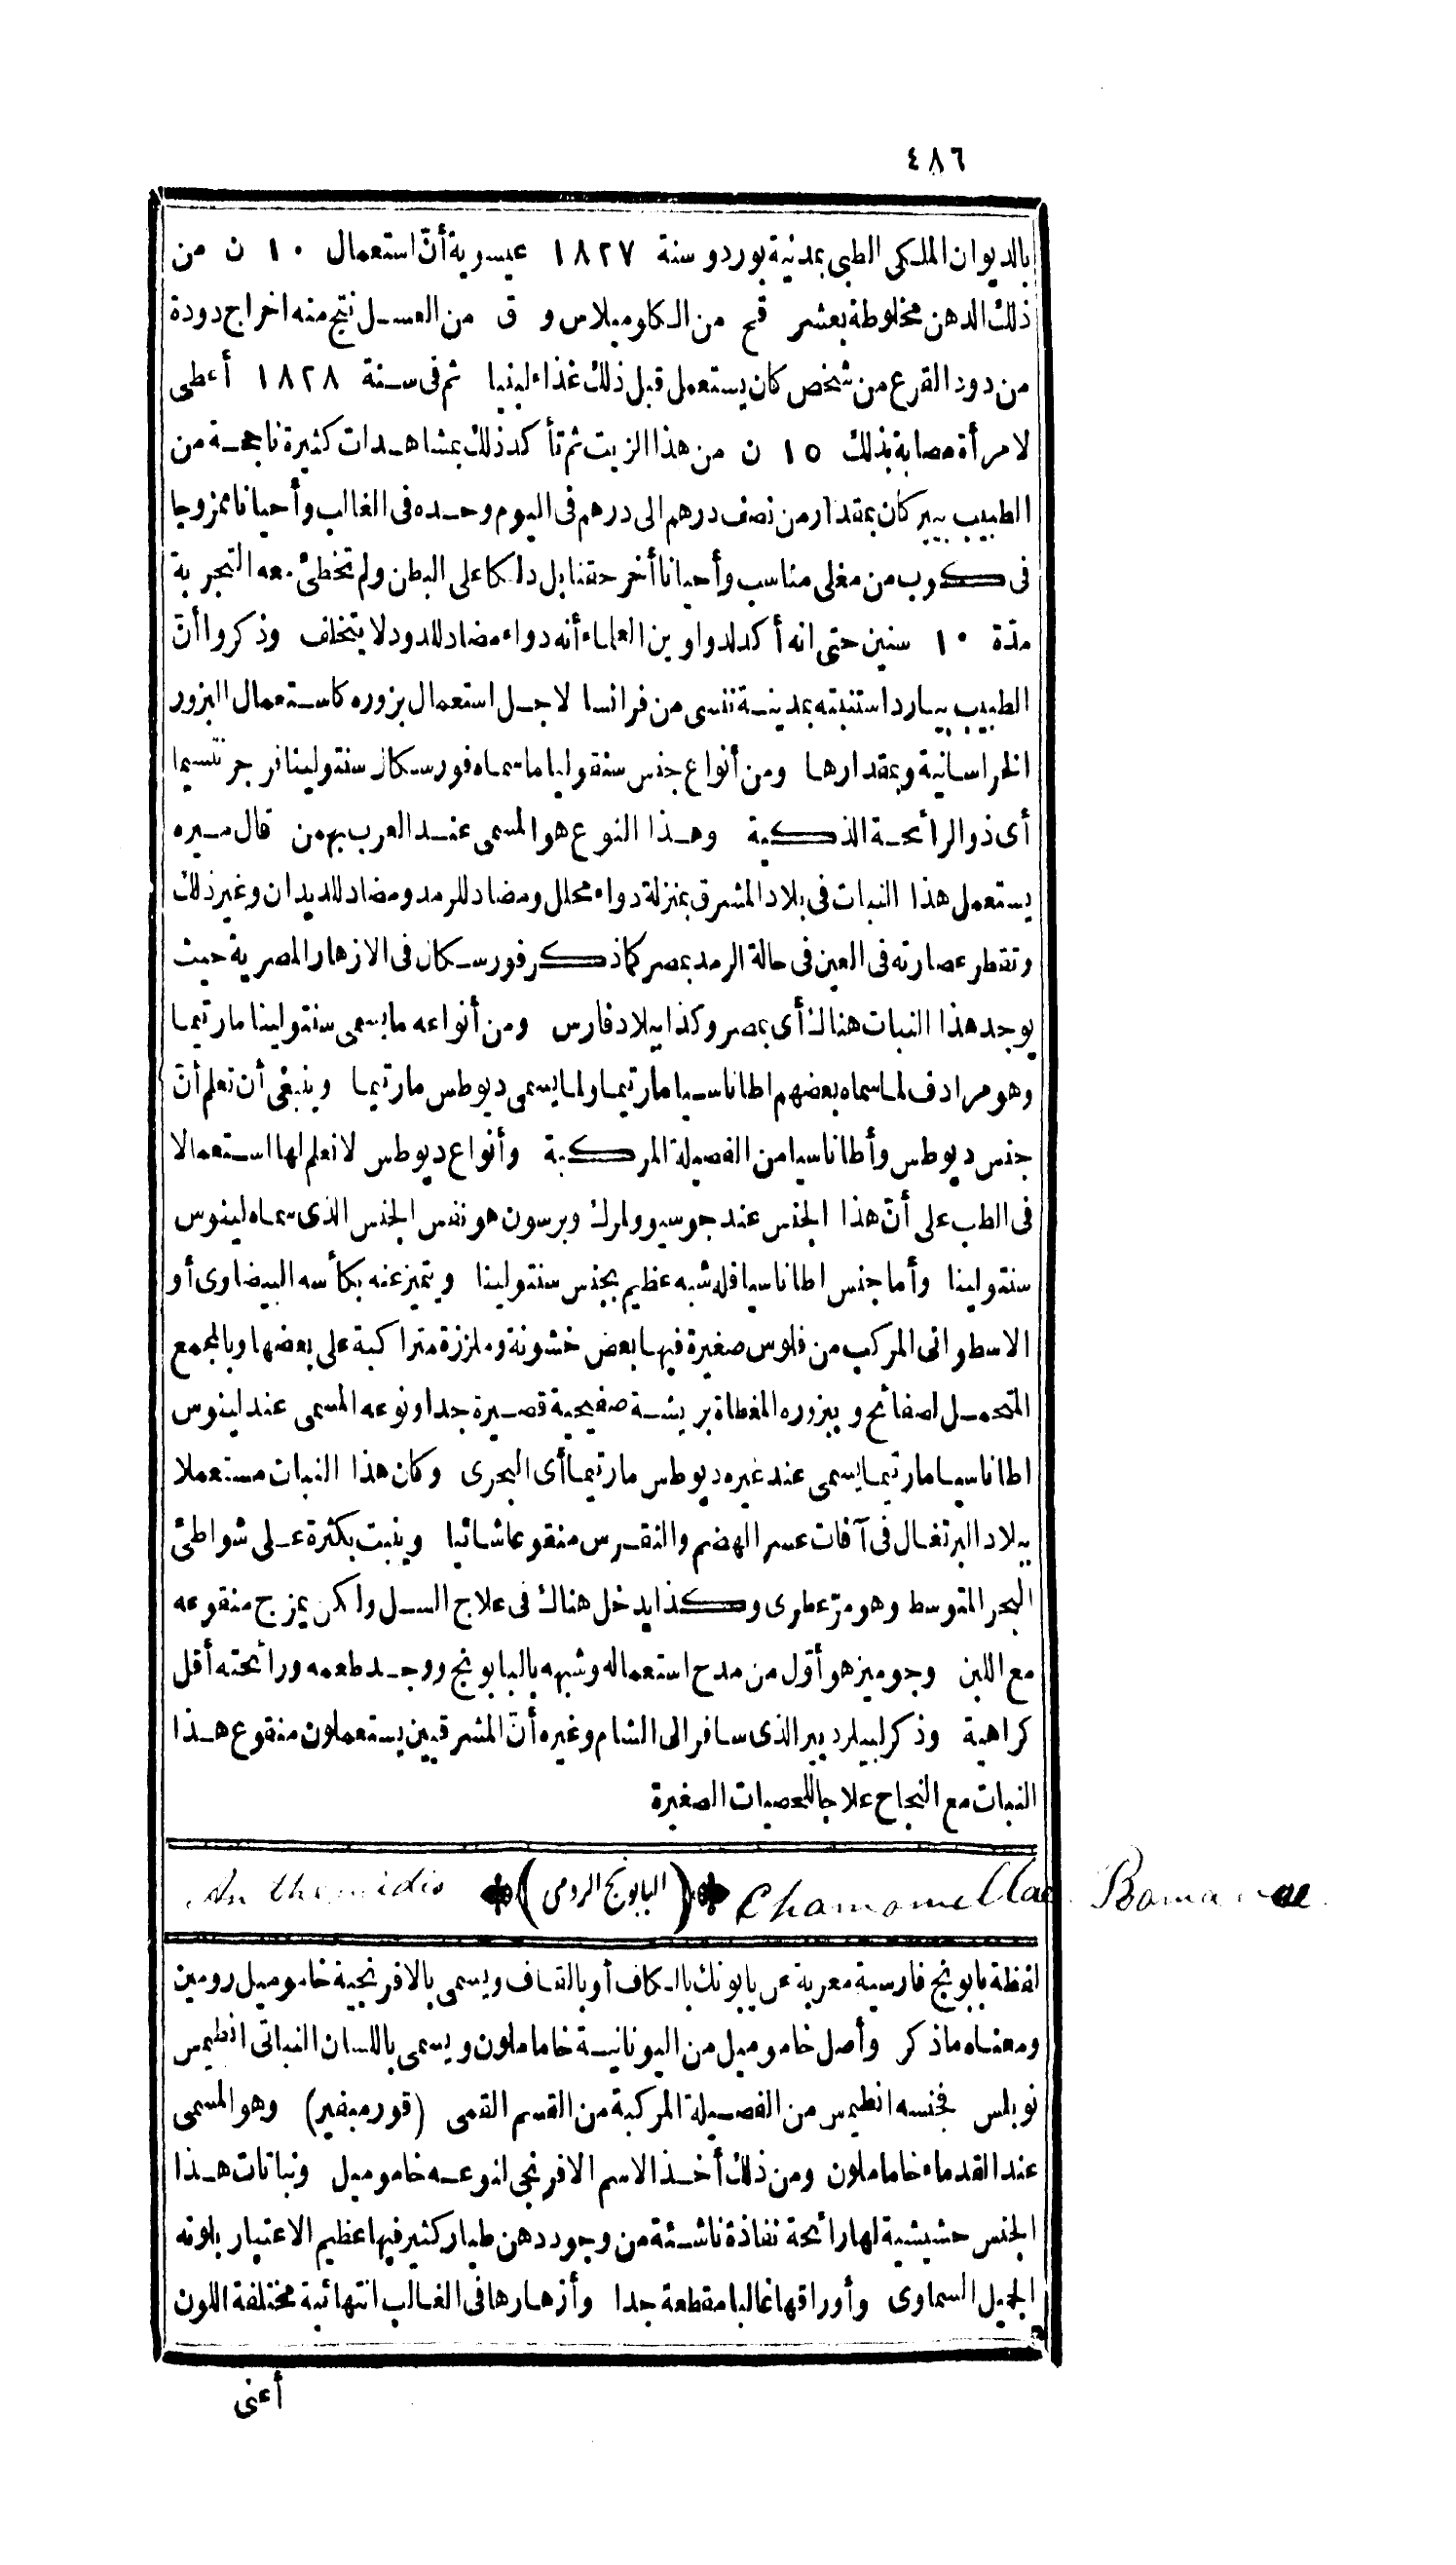 ٤٨٦
بالديوان الملكى الطبى بمدينة بوردو سنة ١٨٢٧ عيسوية أنّ استعمال ١٠ ن من
ذلك الدهن مخلوطة بعشر قمح من الكاوميلاس و ق من العسل نتج منه اخراج دودة
من دود القرع من شخص كان يستعمل قبل ذلك غذاء لبنيا ثم فى سنة ١٨٢٨ أعطى
لامرأة مصابة بذلك ١٥ ن من هذا الزيت ثم تأكد ذلك بمشاهدات كثيرة ناجحة من
الطبيب بيير كان بمقدار من نصف درهم الى درهم فى اليوم وحده فى الغالب وأحيانا ممزوجا
فى كوب من مغلى مناسب وأحيانا أخر حقنا بل دلكا على البطن ولم تخطئ معه التجربة
مدّة ١٠ سنين حتى انه أكد لدواوين العلماء أنه دواء مضاد للدود لا يتخلف وذكروا أنّ
الطبيب بيارد استنبته بمدينة ننسى من فرانسا لاجل استعمال بزوره كاستعمال البزور
الخراسانية وبمقدارها ومن أنواع جنس سنتوليا ما سماه فورسكال سنتولينا فرجرنتسيما
أى ذو الرائحة الذكية وهذا النوع هو المسمى عند العرب بهمن قال ميره
يستعمل هذا النبات فى بلاد المشرق بمنزلة دواء محلل ومضاد للرمد ومضاد للديدان وغير ذلك
وتقطر عصارته فى العين فى حالة الرمد بمصر كما ذكر فورسكال فى الازهار المصرية حيث
يوجد هذا النبات هناك أى بمصر وكذا ببلاد فارس ومن أنواعه ما يسمى سنتولينا مارتيما
وهو مرادف لما سماه بعضهم اطاناسيا مارتيما ولما يسمى ديوطس مارتيما وينبغى أن تعلم أنّ
جنس ديوطس وأطاناسيا من الفصيلة المركبة وأنواع ديوطس لا نعلم لها استعمالا
فى الطب على أنّ هذا الجنس عند جوسيو ولمرك وبرسون هو نفس الجنس الذى سماه لينوس
سنتولينا وأما جنس اطاناسيا فله شبه عظيم بجنس سنتولينا ويتميز عنه بكأسه البيضاوى أو
الاسطوانى المركب من فلوس صغيرة فيها بعض خشونة وملززة متراكبة على بعضها وبالمجمع
المتحمل لصفائح وببزوره المغطاة بريشة صفيحية قصيرة جدا ونوعه المسمى عند لينوس
اطاناسيا مارتيما يسمى عند غيره ديوطس مارتيما أى البحرى وكان هذا النبات مستعملا
ببلاد البرتغال فى آفات عسر الهضم والنقرس منقوعا شائيا وينبت بكثرة على شواطئ
البحر المتوسط وهو مرّ عطرى وكذا يدخل هناك فى علاج السل ولكن يمزج منقوعه
مع اللبن وجوميز هو أوّل من مدح استعماله وشبهه بالبابونج ووجد طعمه ورائحته أقل
كراهية وذكر لبيلرديير الذى سافر الى الشام وغيره أنّ المشرقيين يستعملون منقوع هذا
النبات مع النجاح علاجا للحصيات الصغيرة
Chamomellae Romanae (البابونج الرومى) Anthemidis
لفظة بابونج فارسية معربة عن بابونك بالكاف أو بالقاف ويسمى بالافرنجية خاموميل رومين
ومعناه ما ذكر وأصل خاموميل من اليونانية خاماملون ويسمى باللسان النباتى انطيمس
نوبلس فجنسه انطيمس من الفصيلة المركبة من القسم القمى (قورمبفير) وهو المسمى
عند القدماء خاماملون ومن ذلك أخذ الاسم الافرنجى لنوعه خاموميل ونباتات هذا
الجنس حشيشية لها رائحة نفاذة ناشئة من وجود دهن طيار كثير فيها عظيم الاعتبار بلونه
الجميل السماوى وأوراقها غالبا مقطعة جدا وأزهارها فى الغالب انتهائية مختلفة اللون
أعنى